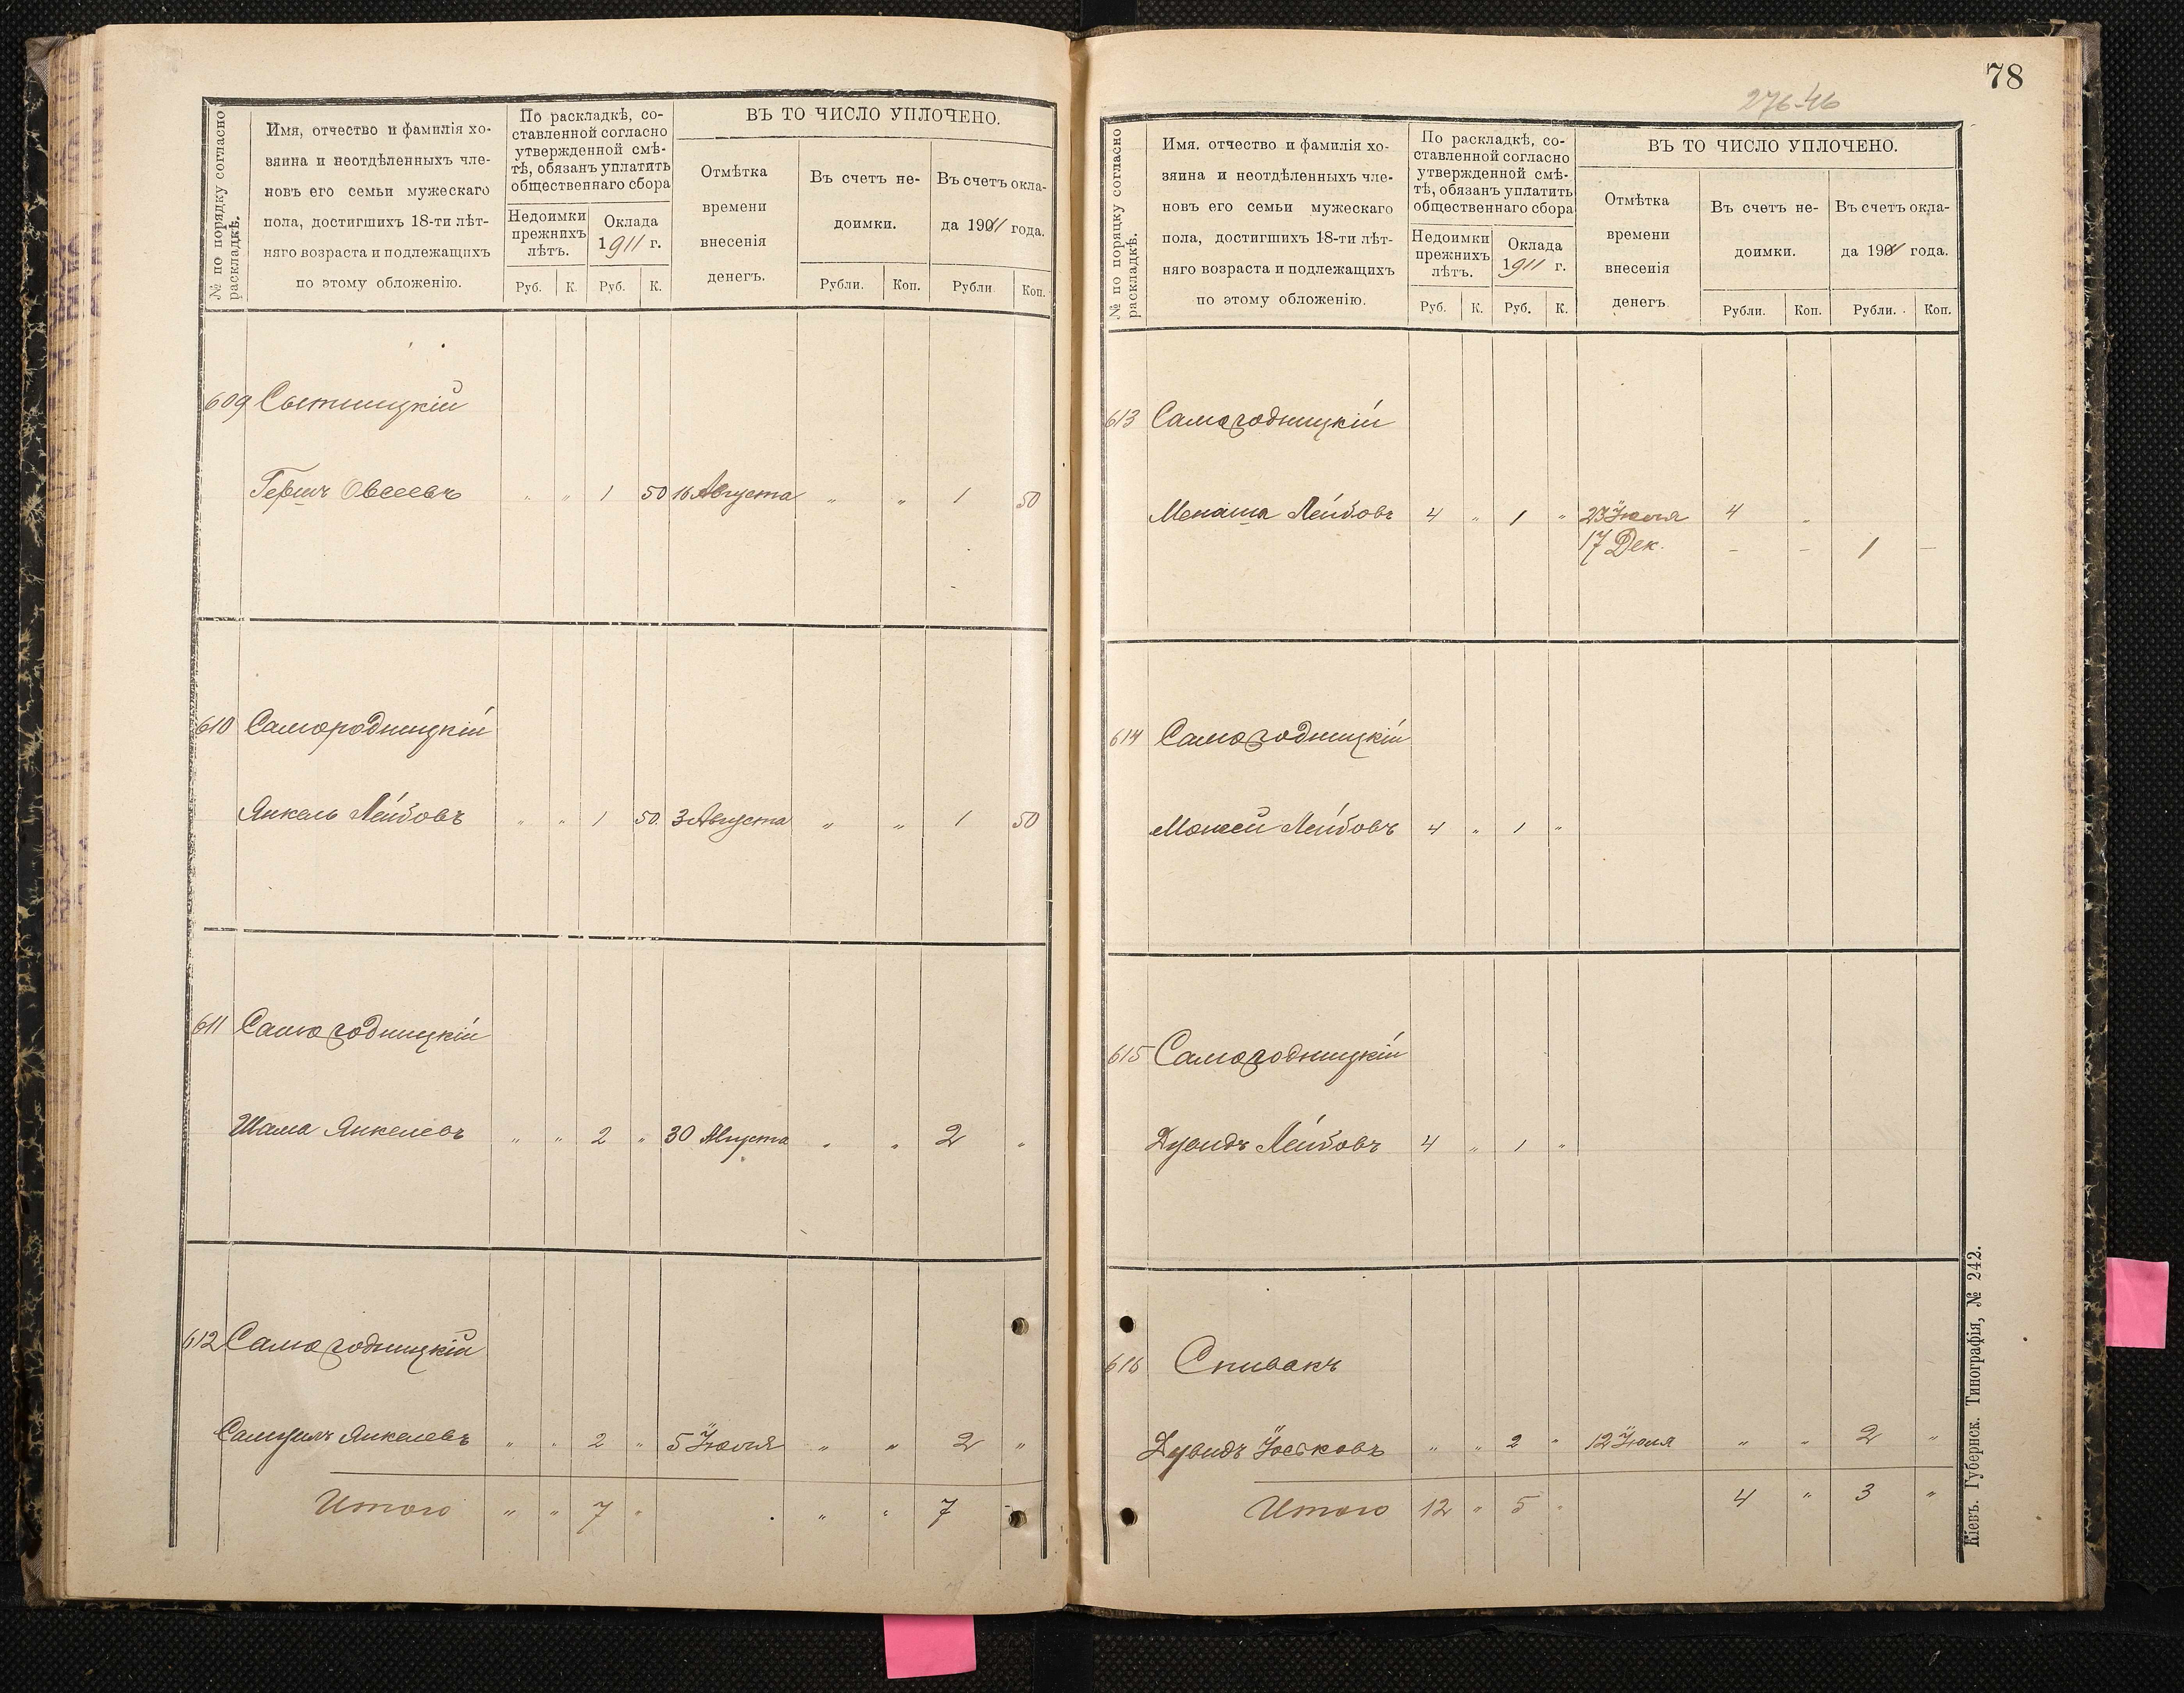 № по порядку согласно раскладкѣ.
Имя, отчество и фамилія хо-
зяина и неотдѣленныхъ чле-
новъ его семьи мужескаго
пола, достигшихъ 18-ти лѣт-
няго возраста и подлежащихъ
по этому обложенію.
По раскладкѣ, со-
ставленной согласно
утвержденной смѣ-
тѣ, обязанъ уплатить
общественнаго сбора
Недоимки
прежнихъ
лѣтъ.
Оклада
1911 г.
Руб. К. Руб. К.
ВЪ ТО ЧИСЛО УПЛОЧЕНО.
Отмѣтка
времени
внесенія
денегъ.
Въ счетъ не-
доимки.
Въ счетъ окла-
да 1911 года.
Рубли. Коп. Рубли Коп.
609 Сытницкій
Гершъ Овсеевъ " " 1 50 16 Августа " " 1 50
610 Самородницкій
Янкель Лейбовъ " " 1 50 3 Августа " " 1 50
611 Самородницкій
Шама Янкелевъ " " 2 " 30 Августа " " 2 "
612 Самородницкій
Самуилъ Янкелевъ " " 2 " 5 Іюля " " 2 "
Итого " " 7 " " " 7
78
276-46
№ по порядку согласно раскладкѣ.
Имя. отчество и фамилія хо-
зяина и неотдѣленныхъ чле-
новъ его семьи мужескаго
пола, достигшихъ 18-ти лѣт-
няго возраста и подлежащихъ
по этому обложенію.
По раскладкѣ, со-
ставленной согласно
утвержденной смѣ-
тѣ, обязанъ уплатить
общественнаго сбора
Недоимки
прежнихъ
лѣтъ.
Оклада
1911 г.
Руб. К. Руб. К.
ВЪ ТО ЧИСЛО УПЛОЧЕНО.
Отмѣтка
времени
внесенія
денегъ
Въ счетъ не-
доимки.
Въ счетъ окла-
да 1911 года.
Рубли. Коп. Рубли. Коп.
613 Самородницкій
Менаша Лейбовъ 4 " 1 " 23 Іюля 4 "
17 Дек. – – 1 –
614 Самородницкій
Мошей Лейбовъ 4 " 1 "
615 Самородницкій
Дувидъ Лейбовъ 4 " 1 "
616 Спивакъ
Дувидъ Іоськовъ " " 2 " 12 Іюля " " 2 "
Итого 12 " 5 " 4 " 3 "
Кіевъ. Губернск. Типографія, № 242.